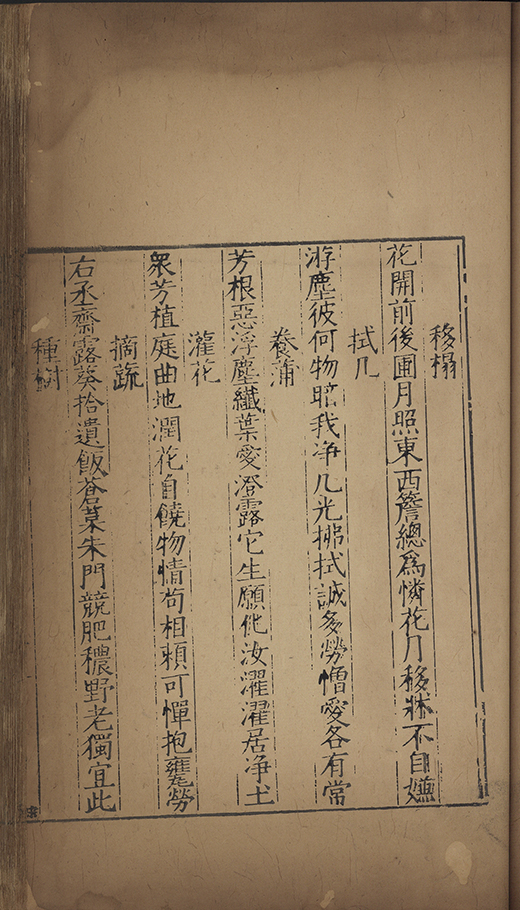 移榻
花開前後圃月照東西簷總爲憐花月移牀不自嫌
拭几
游塵彼何物暗我净几光拂拭誠多勞憎愛各有常
養蒲
芳根惡浮塵纎葉愛澄露它生願化汝濯濯居净土
灌花
衆芳植庭曲地潤花自饒物情苟相賴可憚抱甕勞
摘蔬
右丞齋露葵拾遺飯蒼耳朱門競肥穠野老獨宜此
種樹